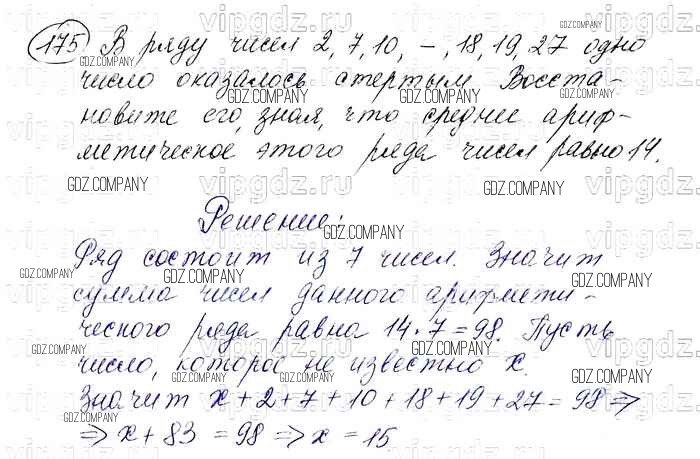 175 В ряду чисел 2, 7, 10, –, 18, 19, 27 одно
число оказалось стертым. Восста-
новите его, зная, что среднее ариф-
метическое этого ряда чисел равно 14.
Решение:
Ряд состоит из 7 чисел. Значит
сумма чисел данного арифмети-
ческого ряда равна 14·7=98. Пусть
число, которое не известно x.
Значит x+2+7+10+18+19+27=98⇒
⇒ x+83=98⇒x=15